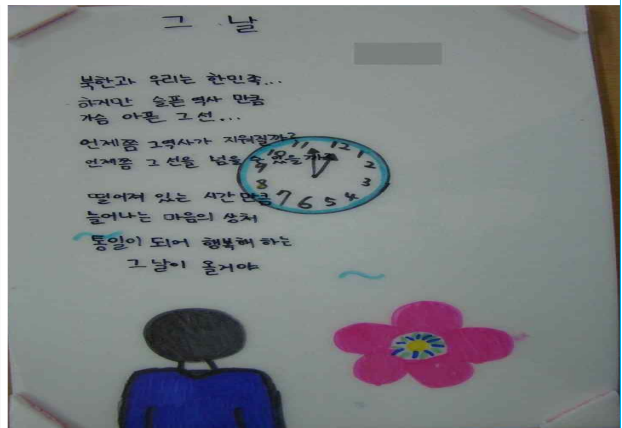 그 날
북한과 우리는 한민족...
하지만 슬픈 역사 만큼
가슴 아픈 그 선...
언제쯤 그역사가 지워질까?
언제쯤 그 선을 넘을 수 있을까?
떨어져 있는 시간 만큼
늘어나는 마음의 상처
통일이 되어 행복해 하는
그 날이 올거야
11 12 1
10 2
9 3
8 4
7 6 5